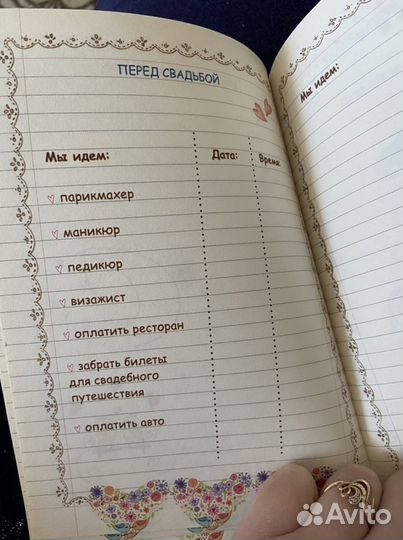 ПЕРЕД СВАДЬБОЙ
Мы идем: Дата: Время:
парикмахер
маникюр
педикюр
визажист
оплатить ресторан
забрать билеты
для свадебного
путешествия
оплатить авто
Мы идем:
Avito